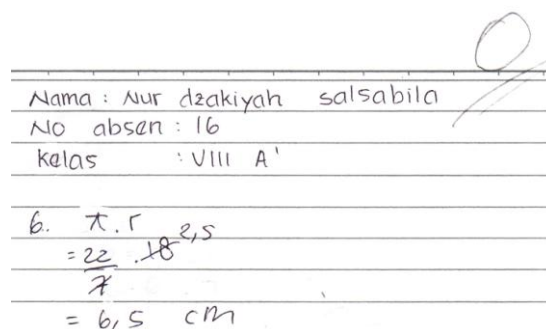 Nama : Nur dzakiyah salsabila
No absen : 16
kelas : VIII A'
6. π . r
= 22/7 . 18 2,5
= 6,5 cm